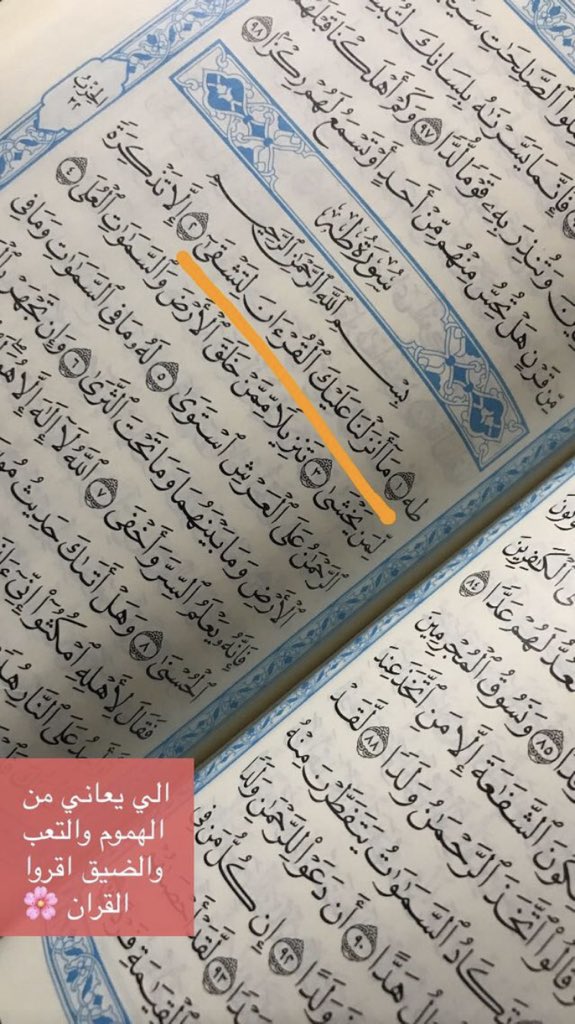 ٱلصَّٰلِحَٰتِ
فَإِنَّمَا يَسَّرْنَٰهُ بِلِسَانِكَ
وَتُنذِرَ بِهِۦ قَوْمًا لُّدًّا ٩٧ وَكَمْ أَهْلَكْنَا قَبْلَهُم
مِّن قَرْنٍ هَلْ تُحِسُّ مِنْهُم مِّنْ أَحَدٍ أَوْ تَسْمَعُ لَهُمْ رِكْزًا ٩٨
الحزب ٣٢
سُورَةُ طه
بِسْمِ ٱللَّهِ ٱلرَّحْمَٰنِ ٱلرَّحِيمِ
طه ١ مَآ أَنزَلْنَا عَلَيْكَ ٱلْقُرْءَانَ لِتَشْقَىٰٓ ٢ إِلَّا تَذْكِرَةً
لِّمَن يَخْشَىٰ ٣ تَنزِيلًا مِّمَّنْ خَلَقَ ٱلْأَرْضَ وَٱلسَّمَٰوَٰتِ ٱلْعُلَى ٤
ٱلرَّحْمَٰنُ عَلَى ٱلْعَرْشِ ٱسْتَوَىٰ ٥ لَهُۥ مَا فِى ٱلسَّمَٰوَٰتِ وَمَا فِى
ٱلْأَرْضِ وَمَا بَيْنَهُمَا وَمَا تَحْتَ ٱلثَّرَىٰ ٦ وَإِن تَجْهَرْ
فَإِنَّهُۥ يَعْلَمُ ٱلسِّرَّ وَأَخْفَى ٧ ٱللَّهُ لَآ إِلَٰهَ إِلَّا هُوَ
ٱلْحُسْنَىٰ ٨ وَهَلْ أَتَىٰكَ حَدِيثُ
فَقَالَ لِأَهْلِهِ ٱمْكُثُوٓا۟ إِنِّىٓ
عَلَى ٱلنَّارِ هُدًى
ٱلْكَٰفِرِينَ
لَهُمْ عَدًّا ٨٤
٨٥ وَنَسُوقُ ٱلْمُجْرِمِينَ
ٱلشَّفَٰعَةَ إِلَّا مَنِ ٱتَّخَذَ عِندَ
ٱتَّخَذَ ٱلرَّحْمَٰنُ وَلَدًا ٨٨ لَّقَدْ
تَكَادُ ٱلسَّمَٰوَٰتُ يَتَفَطَّرْنَ مِنْهُ
هَدًّا ٩٠ أَن دَعَوْا۟ لِلرَّحْمَٰنِ وَلَدًا
وَلَدًا ٩٢ إِن كُلُّ مَن فِى
٩٣ لَّقَدْ
ٱلْقِيَٰمَةِ
الي يعاني من
الهموم والتعب
والضيق اقروا
القران 🌸